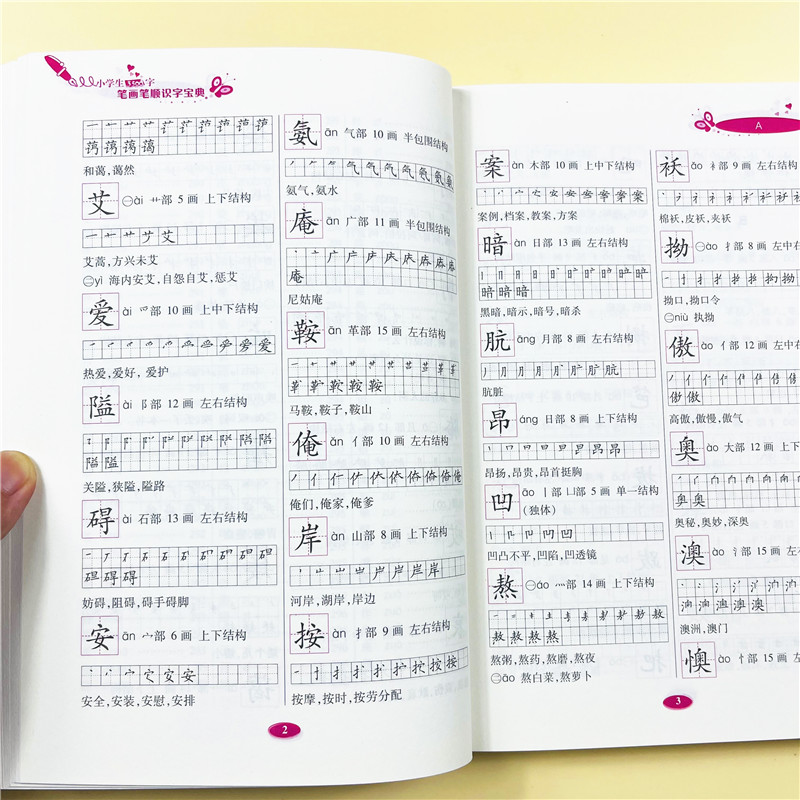 小学生3500字
笔画笔顺识字宝典
和蔼,蔼然
艾 ㊀ài 艹部 5 画 上下结构
艾蒿,方兴未艾
㊁yì 海内安艾,自怨自艾,惩艾
爱 ài 爫部 10 画 上中下结构
热爱,爱好,爱护
隘 ài 阝部 12 画 左右结构
关隘,狭隘,隘路
碍 ài 石部 13 画 左右结构
妨碍,阻碍,碍手碍脚
安 ān 宀部 6 画 上下结构
安全,安装,安慰,安排
氨 ān 气部 10 画 半包围结构
氨气,氨水
庵 ān 广部 11 画 半包围结构
尼姑庵
鞍 ān 革部 15 画 左右结构
马鞍,鞍子,鞍山
俺 ǎn 亻部 10 画 左右结构
俺们,俺家,俺爹
岸 àn 山部 8 画 上下结构
河岸,湖岸,岸边
按 àn 扌部 9 画 左右结构
按摩,按时,按劳分配
2
A
案 àn 木部 10 画 上中下结构
案例,档案,教案,方案
暗 àn 日部 13 画 左右结构
黑暗,暗示,暗号,暗杀
肮 āng 月部 8 画 左右结构
肮脏
昂 áng 日部 8 画 上下结构
昂扬,昂贵,昂首挺胸
凹 āo 丨部 凵部 5 画 单一结构
(独体)
凹凸不平,凹陷,凹透镜
熬 ㊀áo 灬部 14 画 上下结构
熬粥,熬药,熬磨,熬夜
㊁āo 熬白菜,熬萝卜
袄 ǎo 衤部 9 画 左右结构
棉袄,皮袄,夹袄
拗 ㊀ào 扌部 8 画 左中
拗口,拗口令
㊁niù 执拗
傲 ào 亻部 12 画 左中右
高傲,傲慢,傲气
奥 ào 大部 12 画 上下
奥秘,奥妙,深奥
澳 ào 氵部 15 画 左右
澳洲,澳门
懊 ào 忄部 15 画 左
3